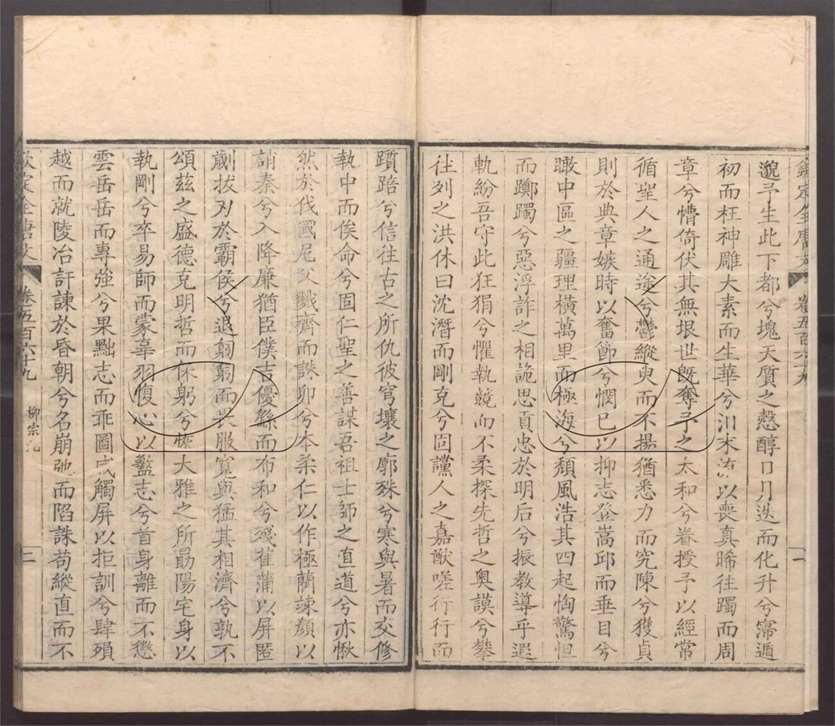 欽定全唐文 卷五百六十九 一
邈予生此下都兮塊天質之慤醇日月迭而化升兮寖遁
初而枉神雕大素而生華兮汩末流以喪真睎往躅而周
章兮懵倚伏其無垠世既奪予之太和兮眷授予以經常
循聖人之通途兮鬱縱臾而不揚猶悉力而究陳兮獲貞
則於典章嫉時以奮節兮憫已以抑志登嵩邱而垂目兮
瞰中區之疆理橫萬里而極海兮頹風浩其四起恟驚怛
而躑躅兮惡浮詐之相詭思貢忠於明后兮振教導乎遐
軌紛吾守此狂狷兮懼執競而不柔探先哲之奧謨兮攀
往列之洪休曰沈潛而剛克兮固讜人之嘉猷嗟行行而
躓踣兮信往古之所仇彼穹壤之廓殊兮寒與暑而交修
執中而俟命兮固仁聖之善謀吾祖士師之直道兮亦愀
然於伐國尼父戮齊而誅卯兮本柔仁以作極藺竦顏以
誚秦兮入降廉猶臣僕吉優繇而布和兮殘萑蒲以屏匿
劌拔刃於霸侯兮退匑匑而畏服寬與猛其相濟兮孰不
頌茲之盛德克明哲而保躬兮恢大雅之所勗陽宅身以
執剛兮卒易師而蒙辜羽愎心以盭志兮首身離而不懲
雲岳岳而專強兮果黜志而乖圖咸觸屏以拒訓兮肆殞
越而就陵冶訐諫於昏朝兮名崩弛而陷誅苟縱直而不
欽定全唐文 卷五百六十九 柳宗元 二